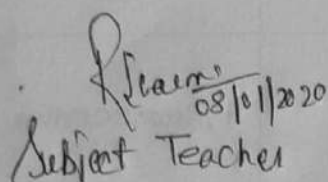 08/01/2020
Subject Teacher